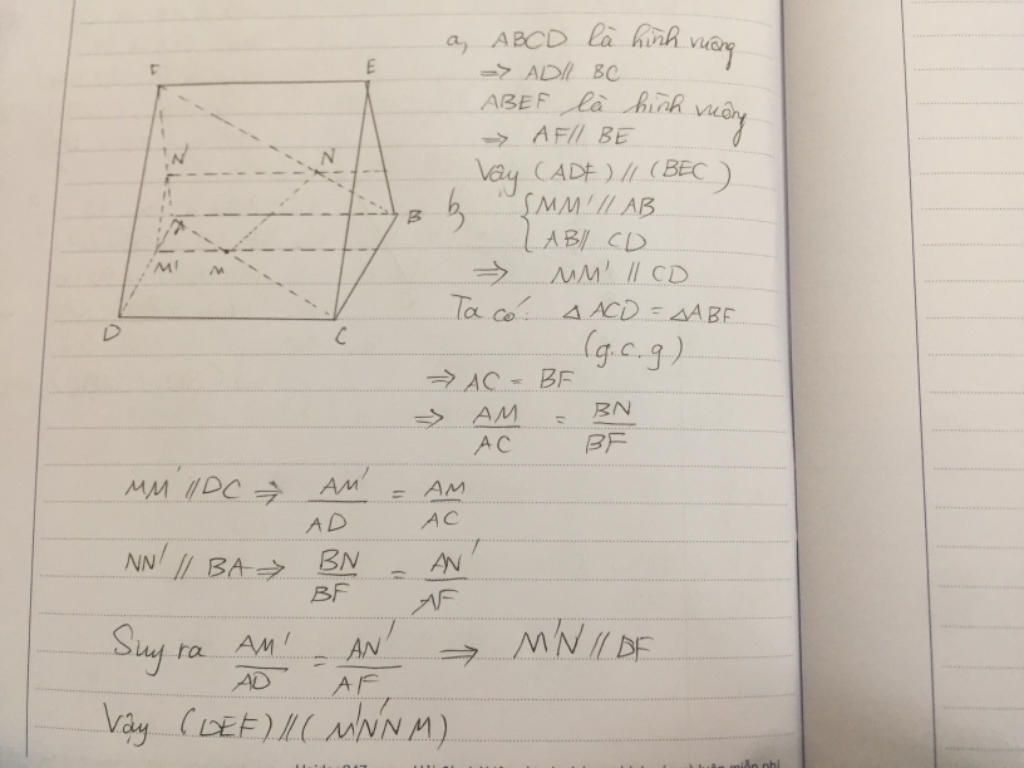 F
E
N'
N
B
M'
M
D
C
a, ABCD là hình vuông
=> AD // BC
ABEF là hình vuông
=> AF // BE
Vậy (ADF) // (BEC)
b, { MM' // AB
AB // CD
=> MM' // CD
Ta có: △ACD = △ABF
(g.c.g)
=> AC = BF
=> AM/AC = BN/BF
MM' // DC => AM'/AD = AM/AC
NN' // BA => BN/BF = AN'/AF
Suy ra AM'/AD = AN'/AF => M'N // DF
Vậy (DEF) // (M'N'NM)